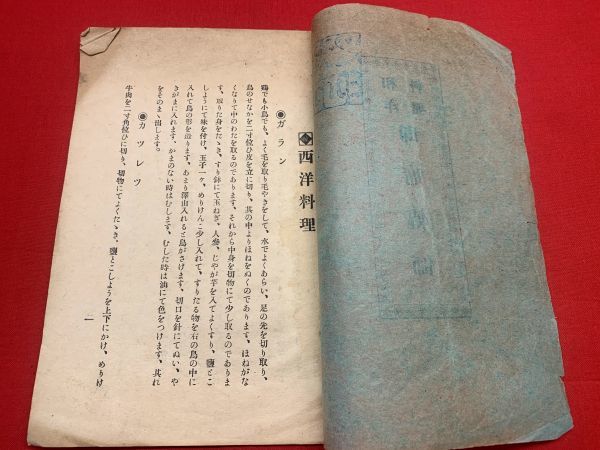 ◆西洋料理
◉ガラン
鶏でも小鳥でも、よく毛を取り毛やきをして、水でよくあらい、足の先を切り取り、
鳥のせなかを二寸位ひ皮を立に切り、其の中よりほねをぬくのであります、ほねがな
くなりて中のわたを取るのであります、それから中身を切物にて少し取るのでありま
す、取りた身をたゝき、すり鉢にて玉ねぎ、人參、じやが芋を入てよくすり、鹽とこ
しようにて味を付け、玉子一ケ、めりけんこ少し入れて、すりたる物を右の鳥の中に
入れて鳥の形を造ります、あまり澤山入れると鳥がさけます、切口を針にてぬい、や
きがまに入れます、かまのない時はむします、むした時は油にて色をつけます、其れ
をそのまゝ出します。
◉カツレツ
牛肉を二寸角位ひに切り、切物にてよくたゝき、鹽とこしようを上下にかけ、めりけ
一